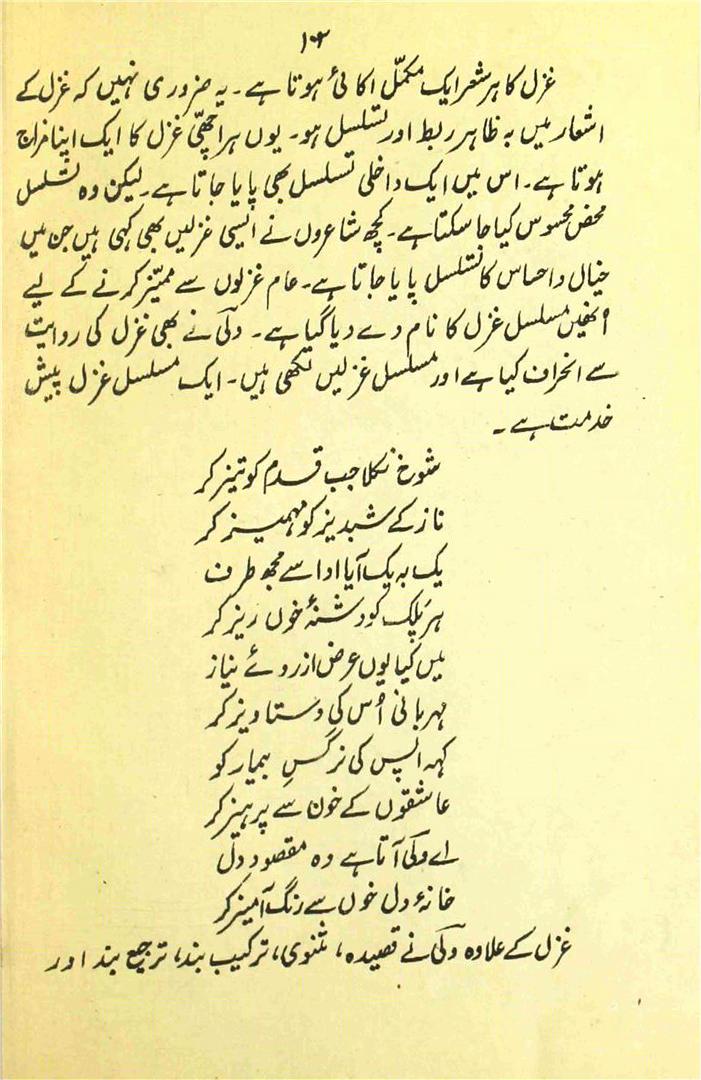 ۱۰۲
غزل کا ہر شعر ایک مکمّل اکائی ہوتا ہے۔ یہ ضروری نہیں کہ غزل کے
اشعار میں بہ ظاہر ربط اور تسلسل ہو۔ یوں ہر اچھّی غزل کا ایک اپنا مزاج
ہوتا ہے۔ اس میں ایک داخلی تسلسل بھی پایا جاتا ہے۔ لیکن وہ تسلسل
محض محسوس کیا جا سکتا ہے۔ کچھ شاعروں نے ایسی غزلیں بھی کہی ہیں جن میں
خیال و احساس کا تسلسل پایا جاتا ہے۔ عام غزلوں سے ممیّز کرنے کے لیے
اُنھیں مسلسل غزل کا نام دے دیا گیا ہے۔ ولیؔ نے بھی غزل کی روایت
سے انحراف کیا ہے اور مسلسل غزلیں لکھی ہیں۔ ایک مسلسل غزل پیش
خدمت ہے۔
شوخ نکلا جب قدم کو تیز کر
ناز کے شبدیز کو مہمیز کر
یک بہ یک آیا ادا سے مجھ طرف
ہر پَلک کو دشنۂ خوں ریز کر
میں کیا یوں عرض از روئے نیاز
مہربانی اُس کی دستاویز کر
کہہ اپس کی نرگسِ بیمار کو
عاشقوں کے خون سے پرہیز کر
اے ولیؔ آتا ہے وہ مقصودِ دل
خانۂ دل خوں سے رنگ آمیز کر
غزل کے علاوہ ولیؔ نے قصیدہ، مثنوی، ترکیب بند، ترجیع بند اور